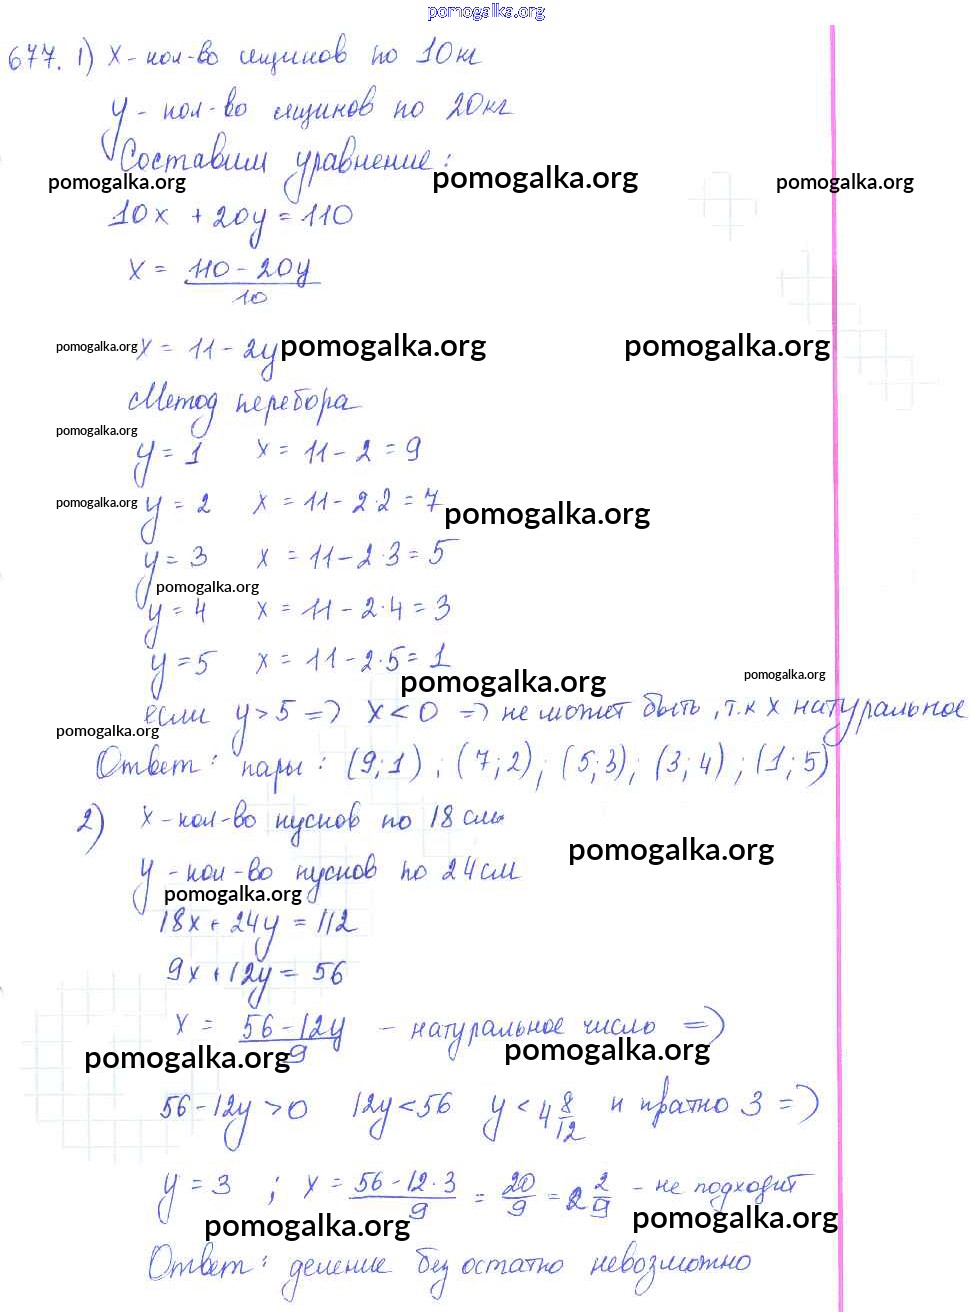 pomogalka.org
677. 1) x - кол-во ящиков по 10кг
y - кол-во ящиков по 20кг
Составим уравнение:
pomogalka.org pomogalka.org pomogalka.org
10x + 20y = 110
x = 110 - 20y / 10
pomogalka.org x = 11 - 2y pomogalka.org pomogalka.org
Метод перебора
pomogalka.org
y = 1 x = 11 - 2 = 9
pomogalka.org y = 2 x = 11 - 2·2 = 7 pomogalka.org
y = 3 x = 11 - 2·3 = 5
pomogalka.org
y = 4 x = 11 - 2·4 = 3
y = 5 x = 11 - 2·5 = 1
pomogalka.org pomogalka.org
если y > 5 => x < 0 => не может быть, т.к x натуральное
pomogalka.org
Ответ: пары: (9;1); (7;2); (5;3); (3;4); (1;5)
2) x - кол-во кусков по 18 см
pomogalka.org
y - кол-во кусков по 24см
pomogalka.org
18x + 24y = 112
9x + 12y = 56
x = 56 - 12y / 9 - натуральное число =>
pomogalka.org pomogalka.org
56 - 12y > 0 12y < 56 y < 4 8/12 и кратно 3 =>
y = 3 ; x = 56 - 12·3 / 9 = 20/9 = 2 2/9 - не подходит
pomogalka.org pomogalka.org
Ответ: деление без остатка невозможно